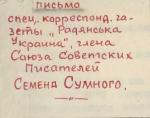 письмо
спец. корреспонд. га-
зеты „Радянська
Украина", члена
Союза Советских
Писателей
Семена Сумного.